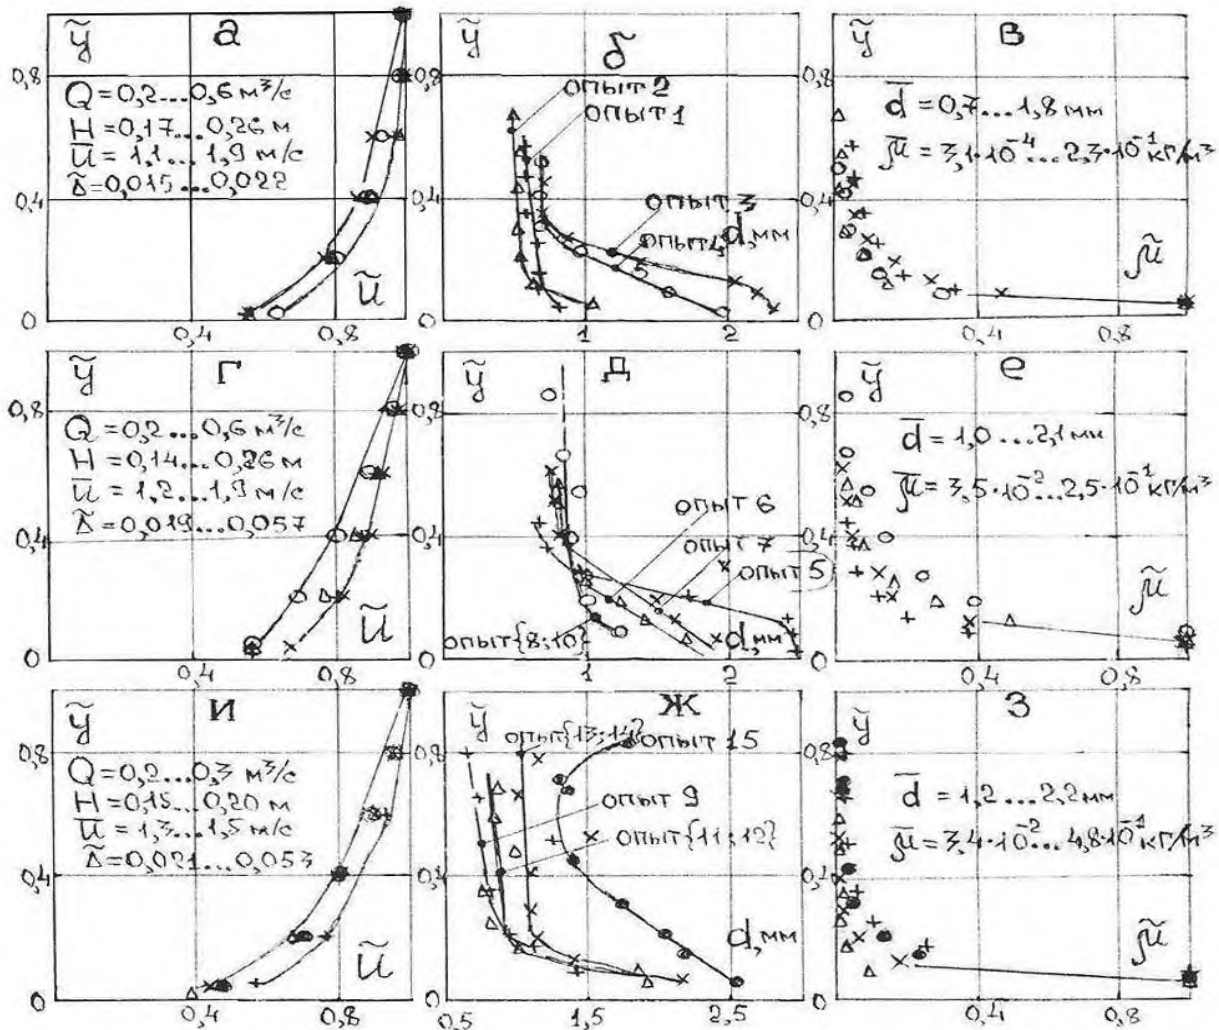 ỹ а
0,8
Q = 0,2...0,6 м³/с
H = 0,17...0,26 м
U̅ = 1,1...1,9 м/с
Δ̃ = 0,015...0,022
0,4
ũ
0
0,4 0,8
ỹ б
0,8
опыт 2
опыт 1
0,4
опыт 3
опыт 4 d, мм
0
1 2
ỹ в
0,8
d̅ = 0,7...1,8 мм
μ̅ = 3,1·10⁻⁴...2,3·10⁻¹ кг/м³
0,4
μ̃
0
0,4 0,8
ỹ г
0,8
Q = 0,2...0,6 м³/с
H = 0,14...0,26 м
U̅ = 1,2...1,9 м/с
Δ̃ = 0,019...0,057
0,4
ũ
0
0,4 0,8
ỹ д
0,8
опыт 6
0,4
опыт 7
опыт 5
опыт {8;10} d, мм
0
1 2
ỹ е
0,8
d̅ = 1,0...2,1 мм
μ̅ = 3,5·10⁻²...2,5·10⁻¹ кг/м³
0,4
μ̃
0
0,4 0,8
ỹ и
0,8
Q = 0,2...0,3 м³/с
H = 0,15...0,20 м
U̅ = 1,3...1,5 м/с
Δ̃ = 0,021...0,053
0,4
ũ
0
0,4 0,8
ỹ ж
опыт {13;14} опыт 15
0,8
опыт 9
опыт {11;12}
0,4
d, мм
0
0,5 1,5 2,5
ỹ з
0,8
d̅ = 1,2...2,2 мм
μ̅ = 3,4·10⁻²...4,8·10⁻¹ кг/м³
0,4
μ̃
0
0,4 0,8